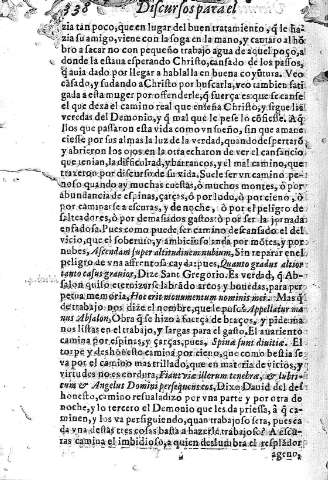 338 Discursos para el
zia tan poco, que en lugar del buen tratamiento, q̃ le ha-
zia su amigo, viene con la soga en la mano, y cantaro al hõ
bro a sacar no con pequeño trabajo agua de aquel poço, a
donde la estaua esperando Christo, cansado de los passos,
q̃ auia dado por llegar a hablalla en buena coyũtura. Veo
cãsado, y sudando à Christo por buscarla, veo tambien fati
gada esta muger por offenderle, q̃ fuerça es que se canse
el que dexa el camino real que enseña Christo, y sigue las
veredas del Demonio, y q̃ mal que le pese lo cõfiesse. Aq̃
llos que passaron esta vida como vn sueño, sin que amane
ciesse por sus almas la luz de la verdad, quando despertarõ
y abrieron los ojos en la otra echaron de ver el cansancio
que tenian, la dificultad, y barrancos, y el mal camino, que
traxeron por discurso de su vida. Suele ser vn camino pe-
noso quando ay muchas cuestas, ò muchos montes, ò por
abundancia de espinas, çarças, ò por lodo, ò por cieno, ò
por caminarse a escuras, y de noche, ò por el peligro de
salteadores, ò por demasiados gastos: ò por ser la jornada
enfadosa. Pues como puede ser camino descansado el del
vicio, que el soberuio, y ambicioso anda por mõtes, y por
nubes, Ascendam super altitudinem nubium, Sin reparar en el
peligro de vna afrentosa cayda pues, Quanto gradus altior
tanto casus grauior, Dize Sant Gregorio. Es verdad, q̃ Ab-
salon quiso eternizarse labrãdo arcos y bouedas, para per
petua memoria, Hoc erit monumentum nominis mei. Mas q̃
de trabajo nos dize el nombre, que le puso? Appellatur ma
nus Absalon, Obra q̃ se hizo à fuerça de braços, y pide ma
nos listas en el trabajo, y largas para el gasto. El auariento
camina por espinas, y çarças, pues, Spinæ sunt diuitiæ. El
torpe y deshonesto camina por cieno, que como bestia se
va por el camino mas trillado, que en materia de vicios, y
virtudes no es cordura, Fiant viæ illorum tenebræ, & lubri-
cum & Angelus Domini persequens eos, Dixo Dauid del des
honesto, camino resualadizo por vna parte y por otra de
noche, y lo tercero el Demonio que les da priessa, à q̃ ca-
minen, y los va persiguiendo, quan trabajoso sera, pues ca
da vna destas tres cosas basta a hazerle trabajoso? A escu-
ras camina el imbidioso, a quien deslumbra el resplãdor
ageno,